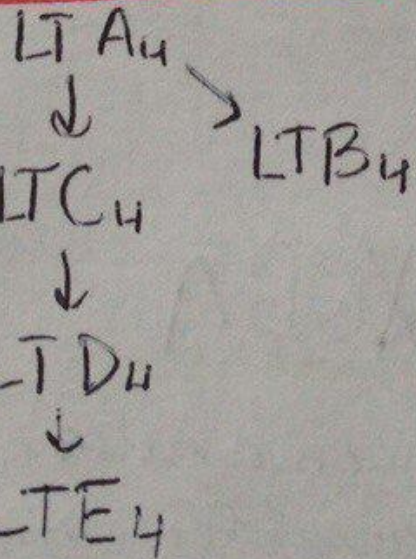 LTA4
LTB4
LTC4
LTD4
LTE4